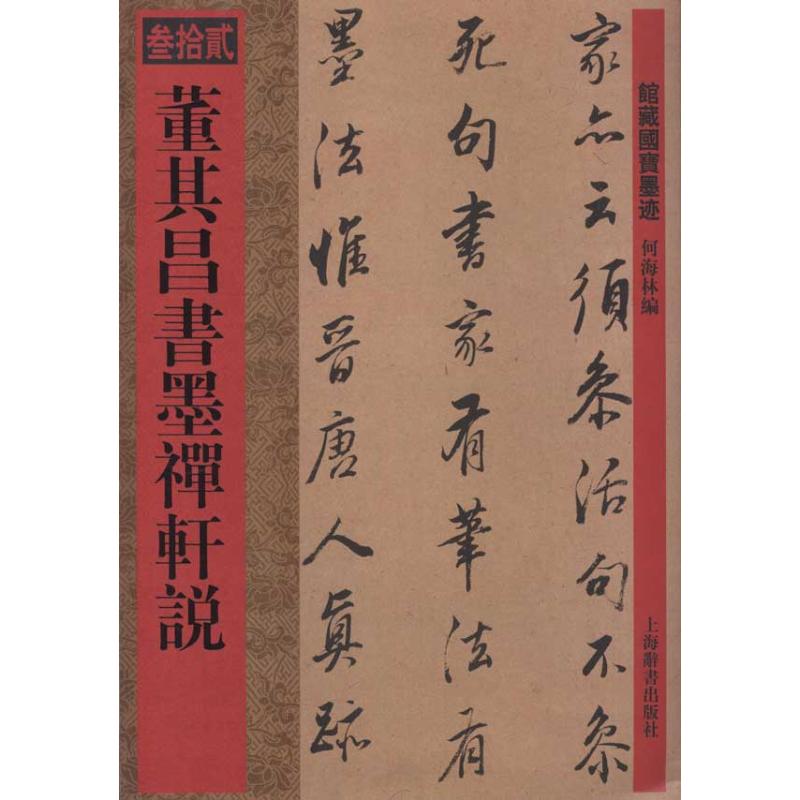 館藏國寶墨迹
何海林编
上海辭書出版社
家亦云須条活句不条
死句書家有筆法有
墨法惟晋唐人真跡
叁拾貳
董其昌書墨禪軒説